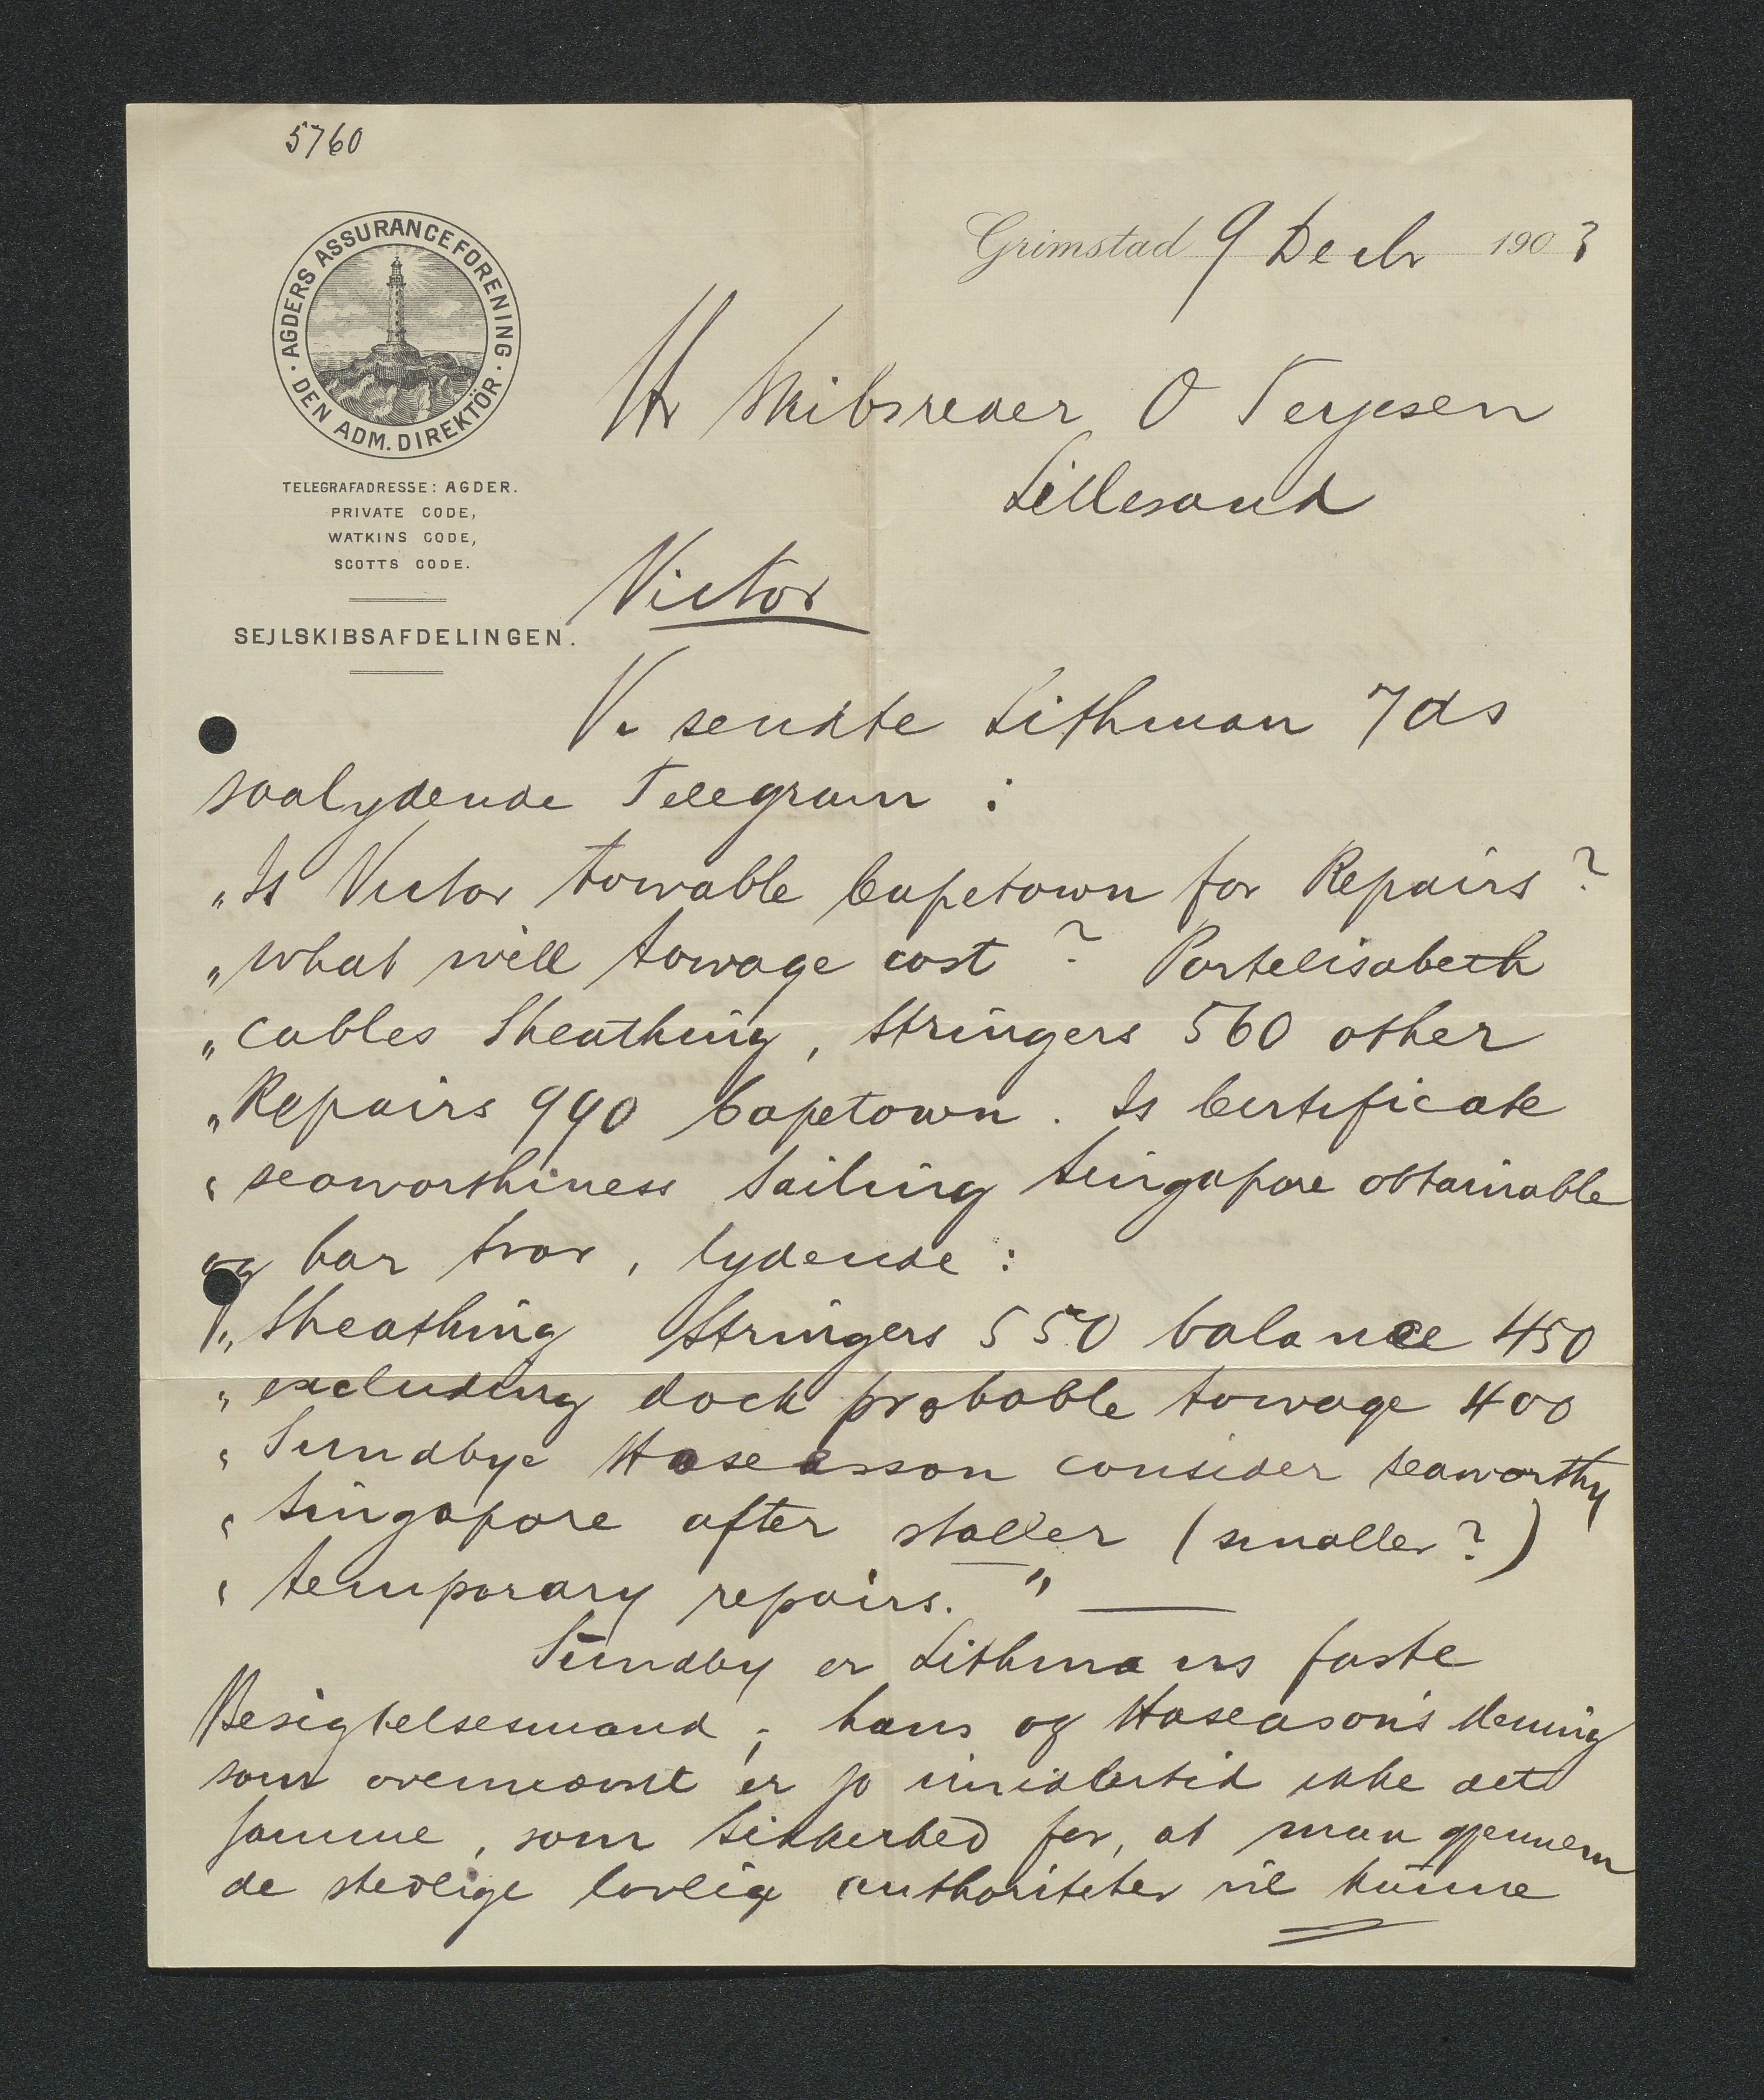 5760
AGDERS ASSURANCEFORENING · DEN ADM. DIREKTÖR ·
Grimstad 9 Decbr 1903
Hr Skibsreder O Terjesen
Lillesand
TELEGRAFADRESSE: AGDER.
PRIVATE CODE,
WATKINS CODE,
SCOTTS CODE.
SEJLSKIBSAFDELINGEN.
Victor
Vi sendte Lithman 7 ds
saalydende Telegram :
„Is Victor towable Capetown for Repairs ?
„what will towage cost ? Portelisabeth
„cables Sheathing, Stringers 560 other
„Repairs 990 Capetown. Is Certificate
„seaworthiness Sailing Singapore obtainable
og har svar, lydende :
„Sheathing Stringers 550 balance 450
„excluding dock probable towage 400
„Sundbye Haseasson consider seaworthy
„Singapore after staller (smaller ?)
„temporary repairs."
Sundby er Lithmans faste
Besigtelsesmand ; hans og Haseason's Mening
som ovennævnt er jo imidlertid ikke det
samme, som Sikkerhed for, at man gjennem
de stedlige lovlige authoriteter vil kunne